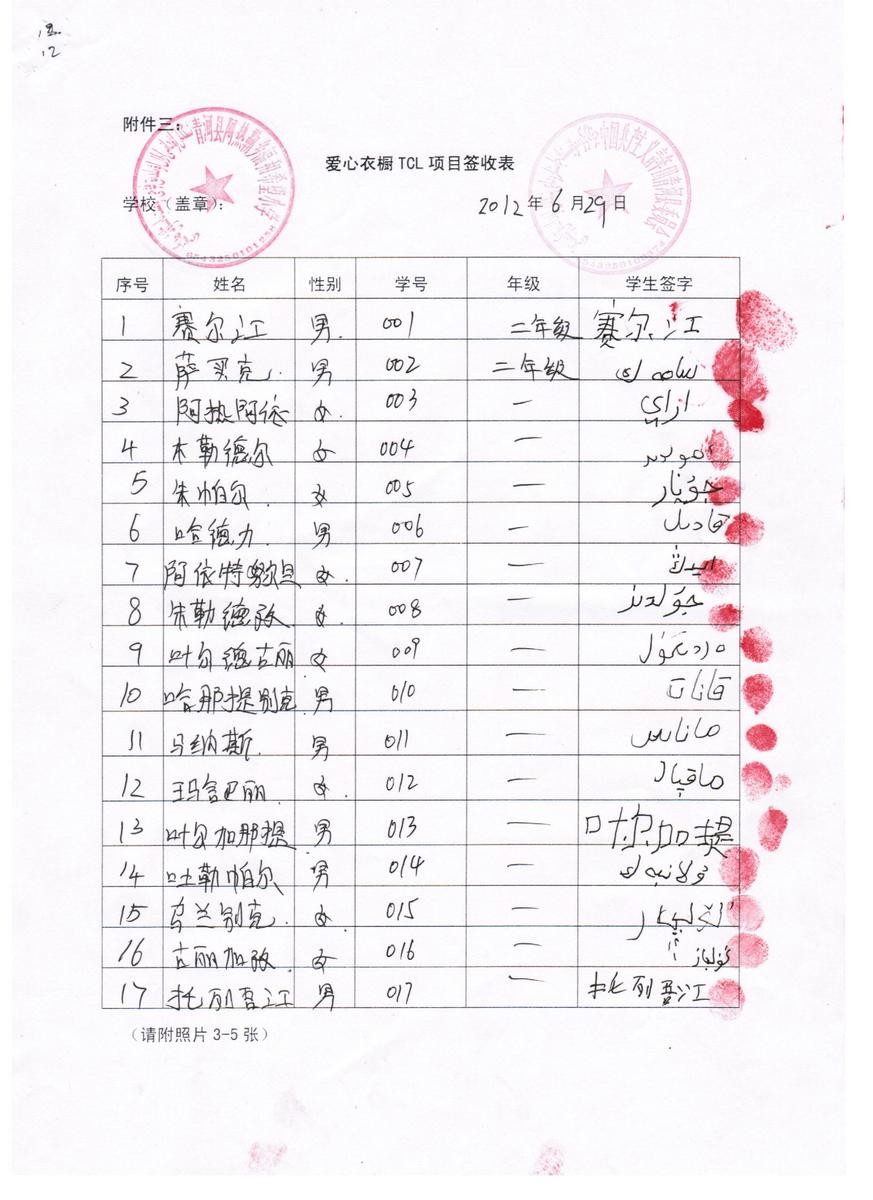 12
附件三:
爱心衣橱 TCL 项目签收表
学校(盖章): 2012 年 6 月 29 日
6543250101258
序号 姓名 性别 学号 年级 学生签字
1 赛尔江 男. 001 二年级 赛尔江
2 萨买克. 男 002 二年级
3 阿热阿依 女. 003 一 اراي
4 木勒德尔 女 004 一
5 朱帕尔. 女 005 一 جۇپار
6 哈德力 男 006 一 قادىل
7 阿依特 女. 007 一
8 朱勒德孜 女. 008 一 جۇلدىز
9 叶尔德古丽 女 009 一
10 哈那提别克 男 010 一 قانات
11 马纳斯. 男 011 一 ماناس
12 巴丽. 女. 012 一 ماقپال
13 叶尔加那提 男 013 一 叶尔加提
14 吐勒帕尔 男 014 一
15 乌兰别克. 女. 015 一
16 古丽加孜. 女 016 一
17 托列吾江 男 017 一 托列吾江
(请附照片 3-5 张)